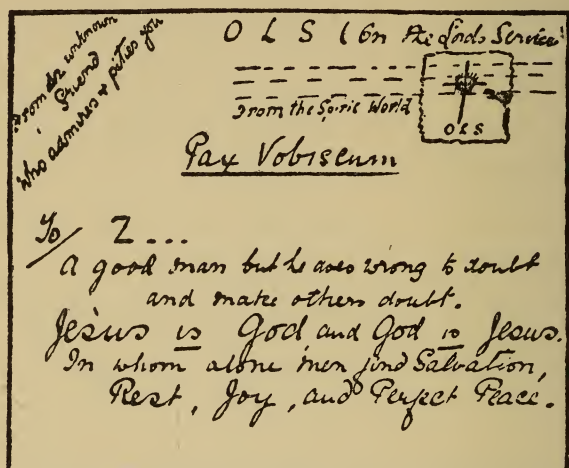 From an unknown
friend
who admires & pities you
O L S (On the Lords Service)
From the Spirit World
O L S
Pax Vobiscum
To Z...
A good man but he does wrong to doubt
and make others doubt.
Jesus is God, and God is Jesus.
In whom alone men find Salvation,
Rest, Joy, and Perfect Peace.